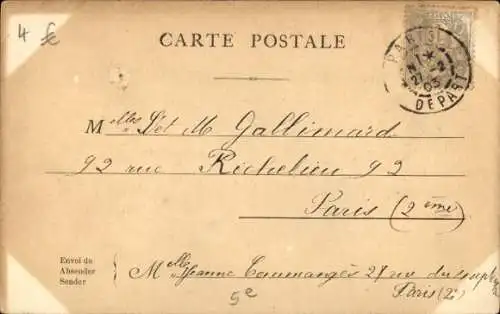 4 fc
CARTE POSTALE
PARIS
21-2
03
DEPART
Melles et M Gallimard
92 rue Richelieu 92
Paris (2ème)
Envoi de
Absender
Sender
Melle Jeanne 27 rue du
Paris (2e)
5e